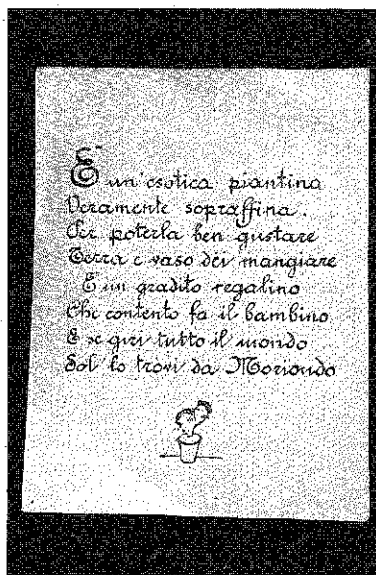 È un'esotica piantina
Veramente sopraffina.
Per poterla ben gustare
Terra e vaso dei mangiare
È un gradito regalino
Che contento fa il bambino
E se giri tutto il mondo
Sol lo trovi da Moriondo